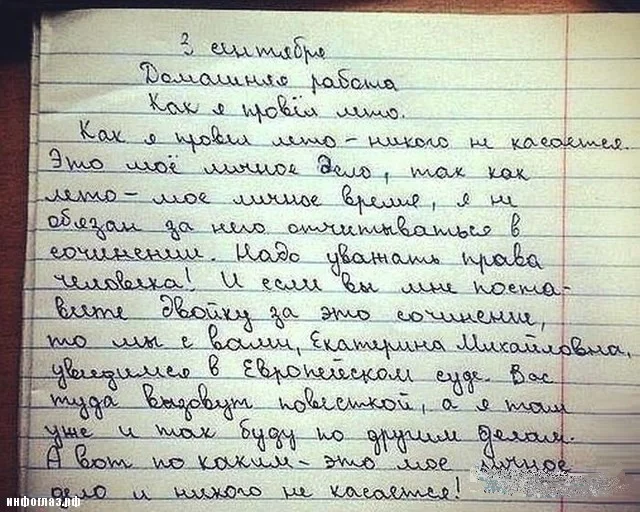 3 сентября
Домашняя работа
Как я провёл лето.
Как я провёл лето - никого не касается.
Это моё личное дело, так как
лето - мое личное время, я не
обязан за него отчитываться в
сочинении. Надо уважать права
человека! И если вы мне поста-
вите двойку за это сочинение,
то мы с вами, Екатерина Михайловна,
увидимся в Европейском суде. Вас
туда вызовут повесткой, а я там
уже и так буду по другим делам.
А вот по каким - это мое личное
дело и никого не касается!
инфоглаз.рф